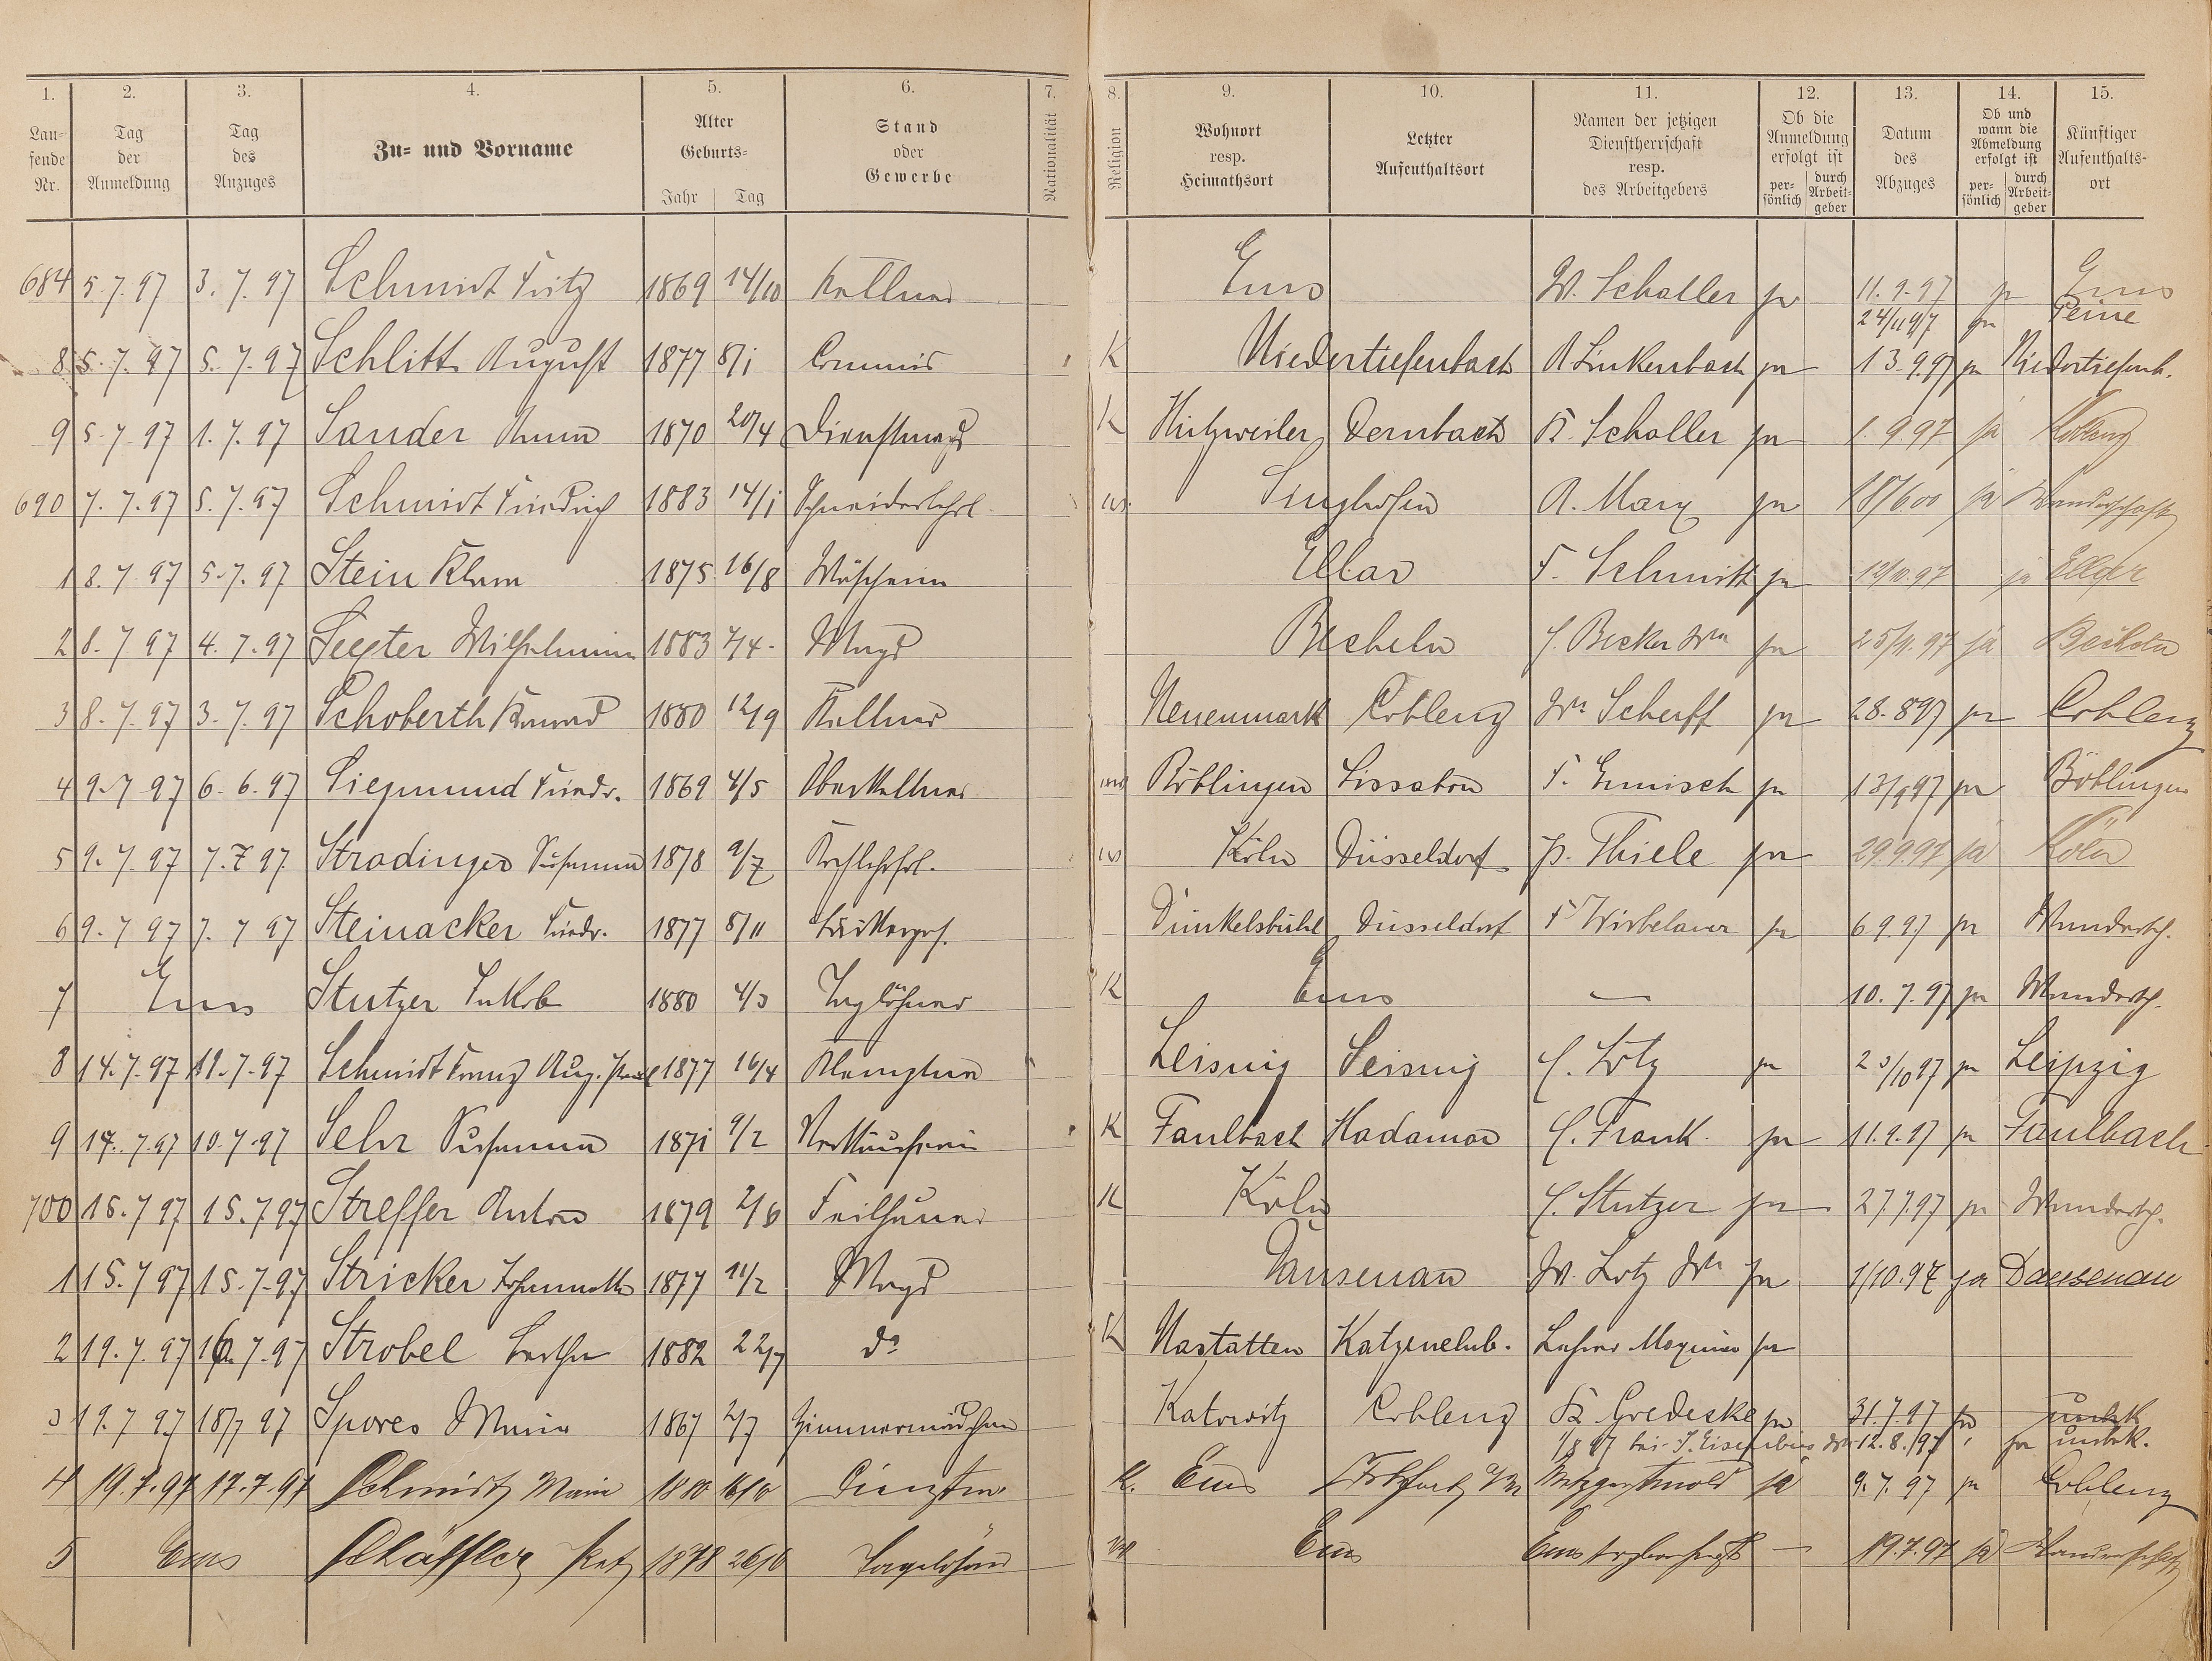 1. 2. 3. 4. 5. 6. 7. 8. 9. 10. 11. 12. 13. 14. 15.
Lau-
fende
Nr.
Tag
der
Anmeldung
Tag
des
Anzuges
Zu- und Vorname
Alter
Geburts-
Jahr Tag
Stand
oder
Gewerbe
Nationalität
Religion
Wohnort
resp.
Heimathsort
Letzter
Aufenthaltsort
Namen der jetzigen
Dienstherrschaft
resp.
des Arbeitgebers
Ob die
Anmeldung
erfolgt ist
per-
sönlich
durch
Arbeit-
geber
Datum
des
Abzuges
Ob und
wann die
Abmeldung
erfolgt ist
per-
sönlich
durch
Arbeit-
geber
Künftiger
Aufenthalts-
ort
684 5.7.97 3.7.97 Schmidt Fritz 1869 14/10 Kellner Ems W. Schaller ja 11.9.97 ja Ems
24/11 97 ja Peine
8 5.7.97 5.7.97 Schlitt August 1877 8/1 Commis K Niedertiefenbach A Linkenbach ja 13.9.97 ja Niedertiefenb.
9 5.7 97 1.7.97 Sander Anna 1870 20/4 Dienstmagd K Hutzweiler Dernbach K. Schaller ja 1.9.97 ja Koblenz
690 7.7.97 5.7.97 Schmidt Friedrich 1883 14/1 Schneiderlehrl. Singhofen A. Marx ja 18/6 00 ja Wanderschaft
1 8.7 97 5.7.97 Stein Klara 1875 16/8 Wäscherin Ellar F. Schmitt ja 12/10.97 ja Ellar
2 8.7 97 4.7.97 Seester Wilhelmine 1883 7/4 Magd Becheln J. Becker Wn ja 25/11.97 ja Becheln
3 8.7.97 3.7.97 Schoberth Konrad 1880 12/9 Kellner Neuenmark Coblenz Wn Scherff ja 28.8 97 ja Coblenz
4 9.7 97 6.6.97 Siegmund Friedr. 1869 4/5 Oberkellner Böblingen Lissabon F. Ermisch ja 13/9 97 ja Böblingen
5 9.7.97 7.7 97 Stradinger Susanna 1878 9/7 Kochlehrl. Köln Düsseldorf P. Thiele ja 29.9.97 ja Köln
6 9.7 97 7.7 97 Steinacker Friedr. 1877 8/11 Bäckerges. Dünkelsbühl Düsseldorf F Wirbelauer ja 6 9.97 ja Wandersch.
7 Ems Stutzer Jakob 1880 4/3 Taglöhner K Ems — 10.7.97 ja Wandersch.
8 14.7.97 11.7.97 Schmidt Franz Aug. Paul 1877 16/4 Klempner Leisnig Leisnig C. Lotz ja 23/10 97 ja Leipzig
9 14.7.97 10.7.97 Sehr Susanna 1871 9/2 Verkäuferin K Faulbach Hadamar C. Frank. ja 11.9.97 ja Faulbach
700 15.7 97 15.7 97 Streffer Anton 1879 2/6 Feilhauer K Köln C. Stutzer ja 27.7.97 ja Wandersch.
1 15.7 97 15.7.97 Stricker Johannette 1877 11/2 Magd Dausenau W. Lotz Wn ja 1/10.97 ja Dausenau
2 19.7.97 16.7.97 Strobel Bertha 1882 22/7 do K Nastätten Katzenelnb. Lehrer Maximin ja
3 19.7 97 18/7 97 Spores Maria 1867 2/7 Zimmermädchen Katowitz Coblenz K Gredeske ja 31.7.97 ja unbek
1/8 97 bei J. Eisenbeis Wn 12.8.97 ja unbek.
4 19.7.97 17.7.97 Schmidt Maria 1880 16/10 K. Ems Frkfurt a/M Metzger Arnold ja 9.7.97 ja Coblenz
5 Ems Schäffler 1878 26/10 Tagelöhner Ems Ems — 19.7.97 ja Wanderschaft